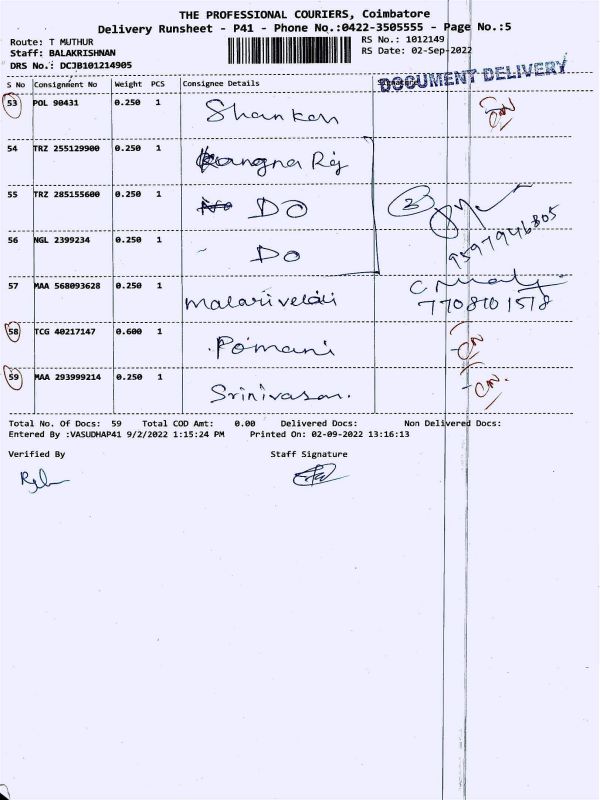 THE PROFESSIONAL COURIERS, Coimbatore
Delivery Runsheet - P41 - Phone No.:0422-3505555 - Page No.:5
Route: T MUTHUR RS No.: 1012149
Staff: BALAKRISHNAN RS Date: 02-Sep-2022
DRS No.: DCJB101214905
DOCUMENT DELIVERY
S No Consignment No Weight PCS Consignee Details Signature
53 POL 90431 0.250 1 Shankar CN
54 TRZ 255129900 0.250 1 Raj
55 TRZ 285155600 0.250 1 DO 3
56 NGL 2399234 0.250 1 DO 9597946805
57 MAA 568093628 0.250 1 7708101518
58 TCG 40217147 0.600 1 Pomani CN
59 MAA 293999214 0.250 1 Srinivasan. CN.
Total No. Of Docs: 59 Total COD Amt: 0.00 Delivered Docs: Non Delivered Docs:
Entered By :VASUDHAP41 9/2/2022 1:15:24 PM Printed On: 02-09-2022 13:16:13
Verified By Staff Signature